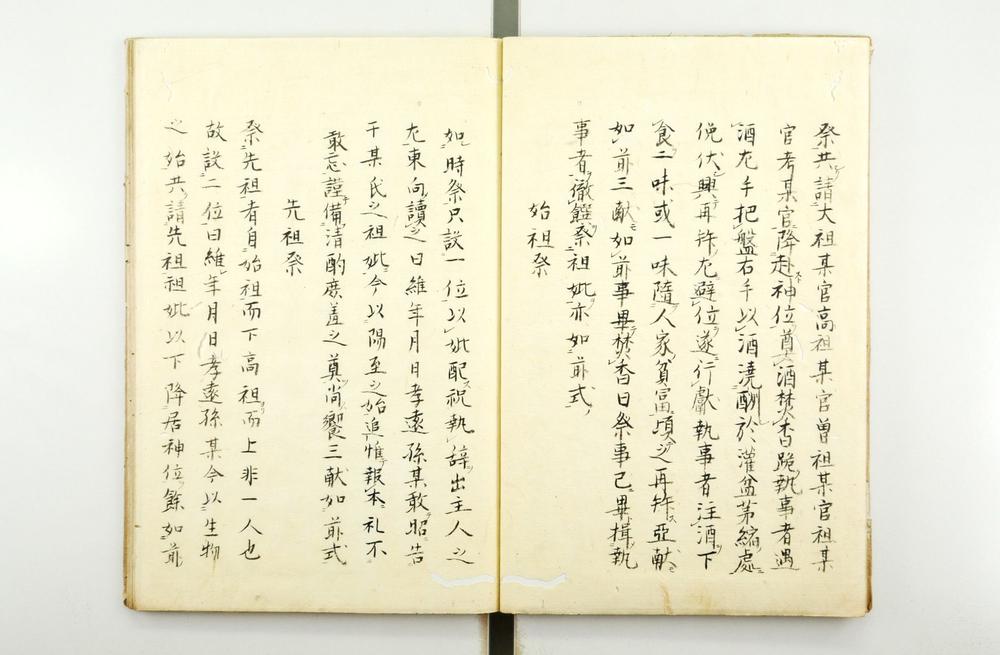 祭共請大祖某官高祖某官曽祖某官祖某
官考某官降赴神位奠酒焚香跪執事者過
酒左手把盤右手以酒澆酹於灌盆茅縮處
俛伏興再拜左避位遂行獻執事者注酒下
食二味或一味隨人家貧富頃之再拜亞献
如前三献如前事畢焚香曰祭事已畢揖執
事者徹饌祭祖妣亦如前式
始祖祭
如時祭只設一位以妣配祝執辞出主人之
左東向讀之曰維年月日孝遠孫某敢昭告
于某氏之祖妣今以陽至之始追惟報本礼不
敢忘謹備清酌庶羞之奠尚饗三献如前式
先祖祭
祭先祖者自始祖而下高祖而上非一人也
故設二位曰維年月日孝遠孫某今以生物
之始共請先祖祖妣以下降居神位餘如前